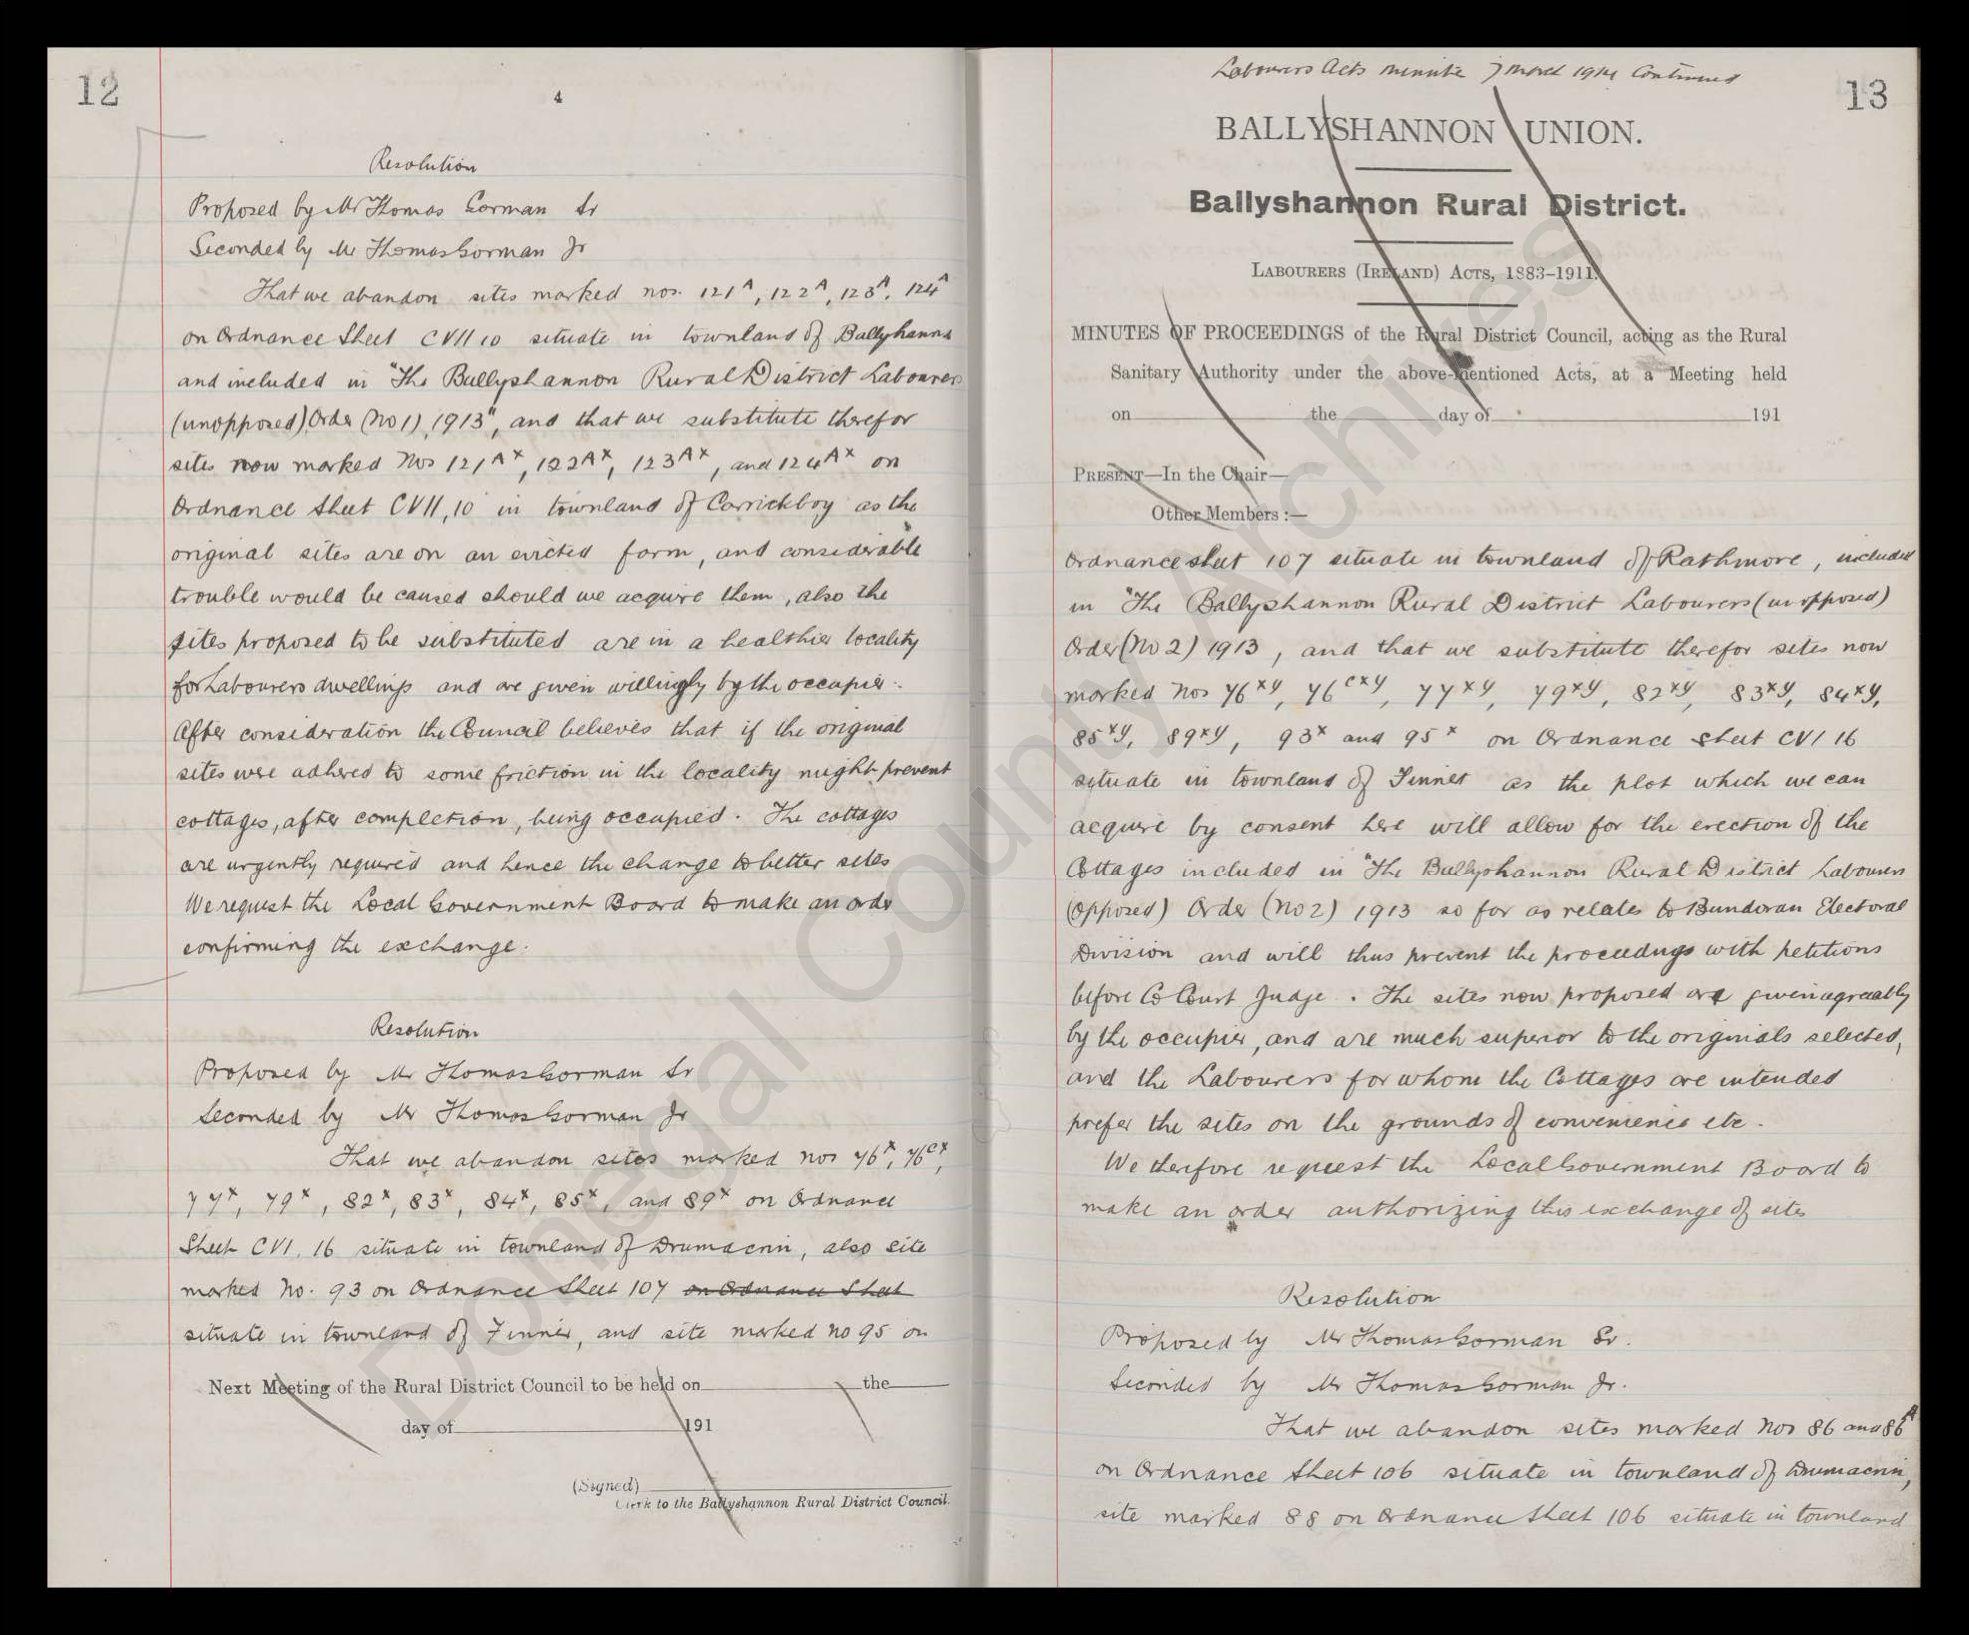 12
4
Resolution
Proposed by Mr Thomas Gorman Sr
Seconded by Mr Thomas Gorman Jr
That we abandon sites marked nos. 121A, 122A, 123A, 124A
on Ordnance Sheet CVII 10 situate in townland of Ballyhanna
and included in "The Ballyshannon Rural District Labourers
(unopposed) Order (No 1), 1913", and that we substitute therefor
sites now marked Nos 121Ax, 122Ax, 123Ax, and 124Ax on
Ordnance Sheet CVII, 10 in townland of Carrickboy as the
original sites are on an evicted farm, and considerable
trouble would be caused should we acquire them, also the
sites proposed to be substituted are in a healthier locality
for Labourers dwellings and are given willingly by the occupier.
After consideration the Council believes that if the original
sites were adhered to some friction in the locality might prevent
cottages, after completion, being occupied. The cottages
are urgently required and hence the change to better sites
We request the Local Government Board to make an order
confirming the exchange.
Resolution
Proposed by Mr Thomas Gorman Sr
Seconded by Mr Thomas Gorman Jr
That we abandon sites marked nos 76x, 76cx,
77x, 79x, 82x, 83x, 84x, 85x, and 89x on Ordnance
Sheet CVI. 16 situate in townland of Drumacrin, also site
marked No. 93 on Ordnance Sheet 107 on Ordnance Sheet
situate in townland of Finner, and site marked no 95 on
Next Meeting of the Rural District Council to be held on the
day of 191
(Signed)
Clerk to the Ballyshannon Rural District Council.
Labourers Acts minute 7 March 1914 Continued
13
BALLYSHANNON UNION.
Ballyshannon Rural District.
LABOURERS (IRELAND) ACTS, 1883-1911.
MINUTES OF PROCEEDINGS of the Rural District Council, acting as the Rural
Sanitary Authority under the above-mentioned Acts, at a Meeting held
on the day of 191
PRESENT—In the Chair—
Other Members :—
Ordnance sheet 107 situate in townland of Rathmore, included
in "The Ballyshannon Rural District Labourers (unopposed)
Order (No 2) 1913, and that we substitute therefor sites now
marked Nos 76xy, 76cxy, 77xy, 79xy, 82xy, 83xy, 84xy,
85xy, 89xy, 93x and 95x on Ordnance sheet CVI 16
situate in townland of Finner as the plot which we can
acquire by consent here will allow for the erection of the
Cottages included in "The Ballyshannon Rural District Labourers
(opposed) Order (No 2) 1913 so far as relates to Bundoran Electoral
Division and will thus prevent the proceedings with petitions
before Co Court Judge. The sites now proposed are given agreeably
by the occupier, and are much superior to the originals selected,
and the Labourers for whom the Cottages are intended
prefer the sites on the grounds of convenience etc.
We therefore request the Local Government Board to
make an order authorizing this exchange of sites
Resolution
Proposed by Mr Thomas Gorman Sr.
Seconded by Mr Thomas Gorman Jr.
That we abandon sites marked Nos 86 and 86A
on Ordnance Sheet 106 situate in townland of Drumacrin,
site marked 88 on Ordnance Sheet 106 situate in townland
Donegal County Archives